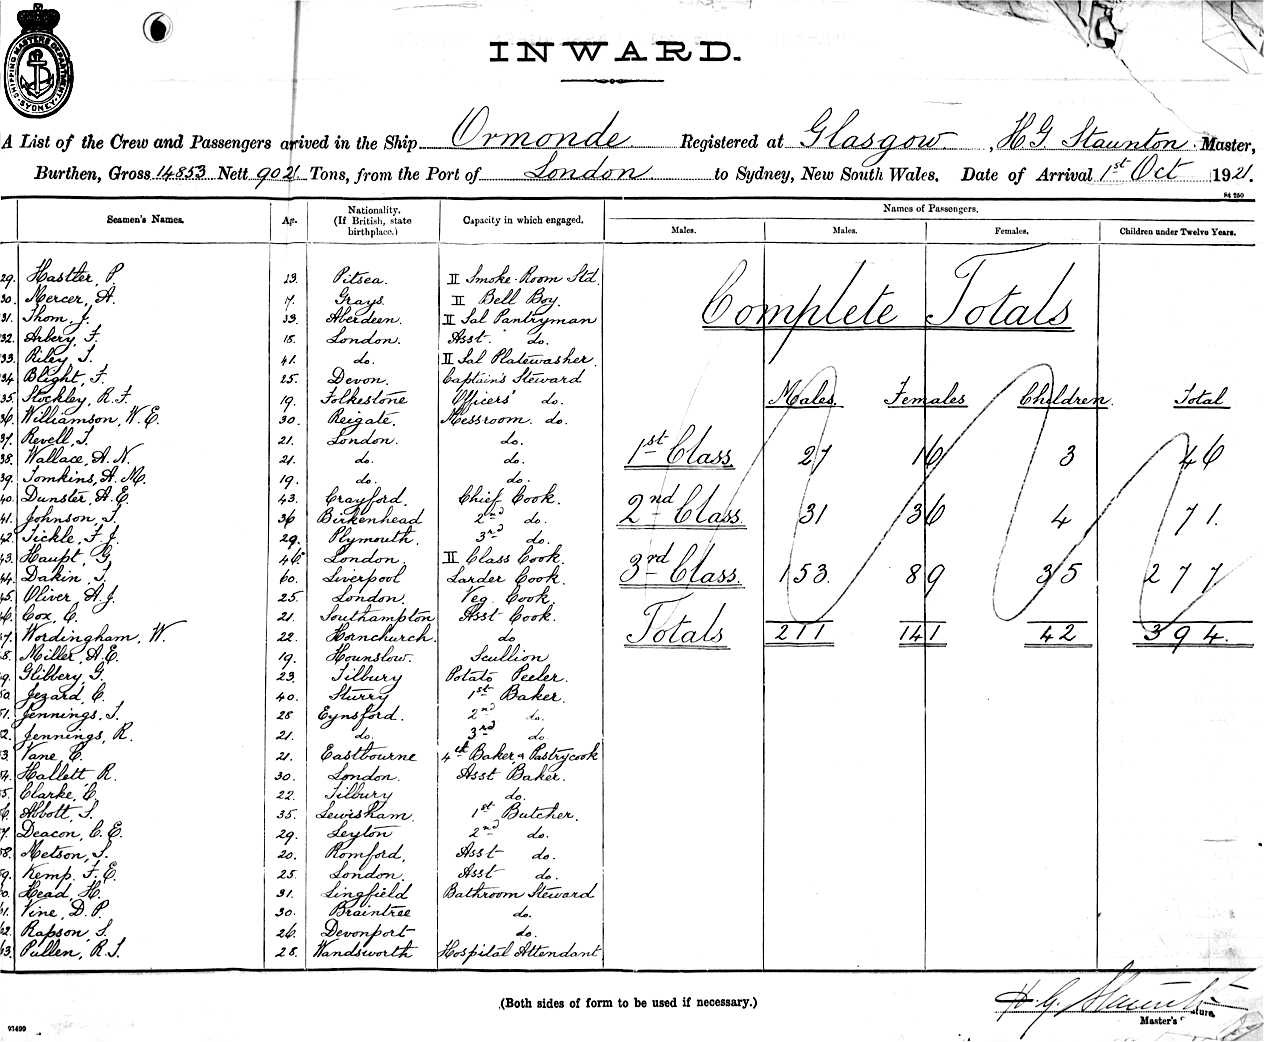 SHIPPING MASTERS DEPARTMENT SYDNEY
INWARD.
A List of the Crew and Passengers arrived in the Ship Ormonde Registered at Glasgow, H G Staunton Master,
Burthen, Gross 14853 Nett 9021 Tons, from the Port of London to Sydney, New South Wales. Date of Arrival 1st Oct 1921.
St 250
Seamen's Names. Age. Nationality. (If British, state birthplace.) Capacity in which engaged. Names of Passengers.
Males. Males. Females. Children under Twelve Years.
29. Hastler, P 19. Pitsea. II Smoke-Room Std.
30. Mercer, A. 17. Grays. II Bell Boy.
31. Thom, J. 19. Aberdeen. II Sal Pantryman
32. Arbery, F. 18. London. Asst. do.
33. Riley, T. 41. do. II Sal Platewasher.
34. Blight, F. 25. Devon. Captain's Steward
35. Stockley, R.F. 19. Folkestone Officers' do.
36. Williamson, W.E. 30. Reigate. Messroom. do.
37. Revell, T. 21. London. do.
38. Wallace, A.N. 21. do. do.
39. Tomkins, A.M. 19. do. do.
40. Dunster, A.E. 43. Crayford. Chief Cook.
41. Johnson, T. 36 Birkenhead 2nd do.
42. Tickle, F.J. 29. Plymouth. 3rd do.
43. Haupt, G 46 London. II Class Cook.
44. Dakin, T. 60. Liverpool Larder Cook.
45. Oliver, A.J. 25. London. Veg. Cook.
46. Cox, C. 21. Southampton Asst Cook.
47. Wordingham, W. 22. Hornchurch. do
48. Miller, A.E. 19. Hounslow. Scullion
49. Glibbery, G. 23. Tilbury Potato Peeler.
50. Jezard, C. 40. Sturry 1st Baker.
51. Jennings, T. 28 Eynsford. 2nd do.
52. Jennings, R. 21. do. 3rd do
53. Vane, C. 21. Eastbourne 4th Baker & Pastrycook
54. Hallett R. 30. London. Asst Baker.
55. Clarke, C. 22. Tilbury do.
56. Abbott, S. 35. Lewisham. 1st Butcher.
57. Deacon, C.E. 29. Leyton 2nd do.
58. Metson, S. 20. Romford. Asst do.
59. Kemp. F.E. 25. London. Asst do.
60. Head, H. 31. Lingfield Bathroom Steward
61. Vine, D.P. 30. Braintree do.
62. Rapson, S. 26. Devonport do.
63. Pullen, R.T. 28. Wandsworth Hospital Attendant
Complete Totals
Males. Females Children. Total
1st Class 27 16 3 46
2nd Class. 31 36 4 71.
3rd Class. 153. 89 35 277
Totals 211 141 42 394.
(Both sides of form to be used if necessary.)
H. G. Staunton
Master's
93499